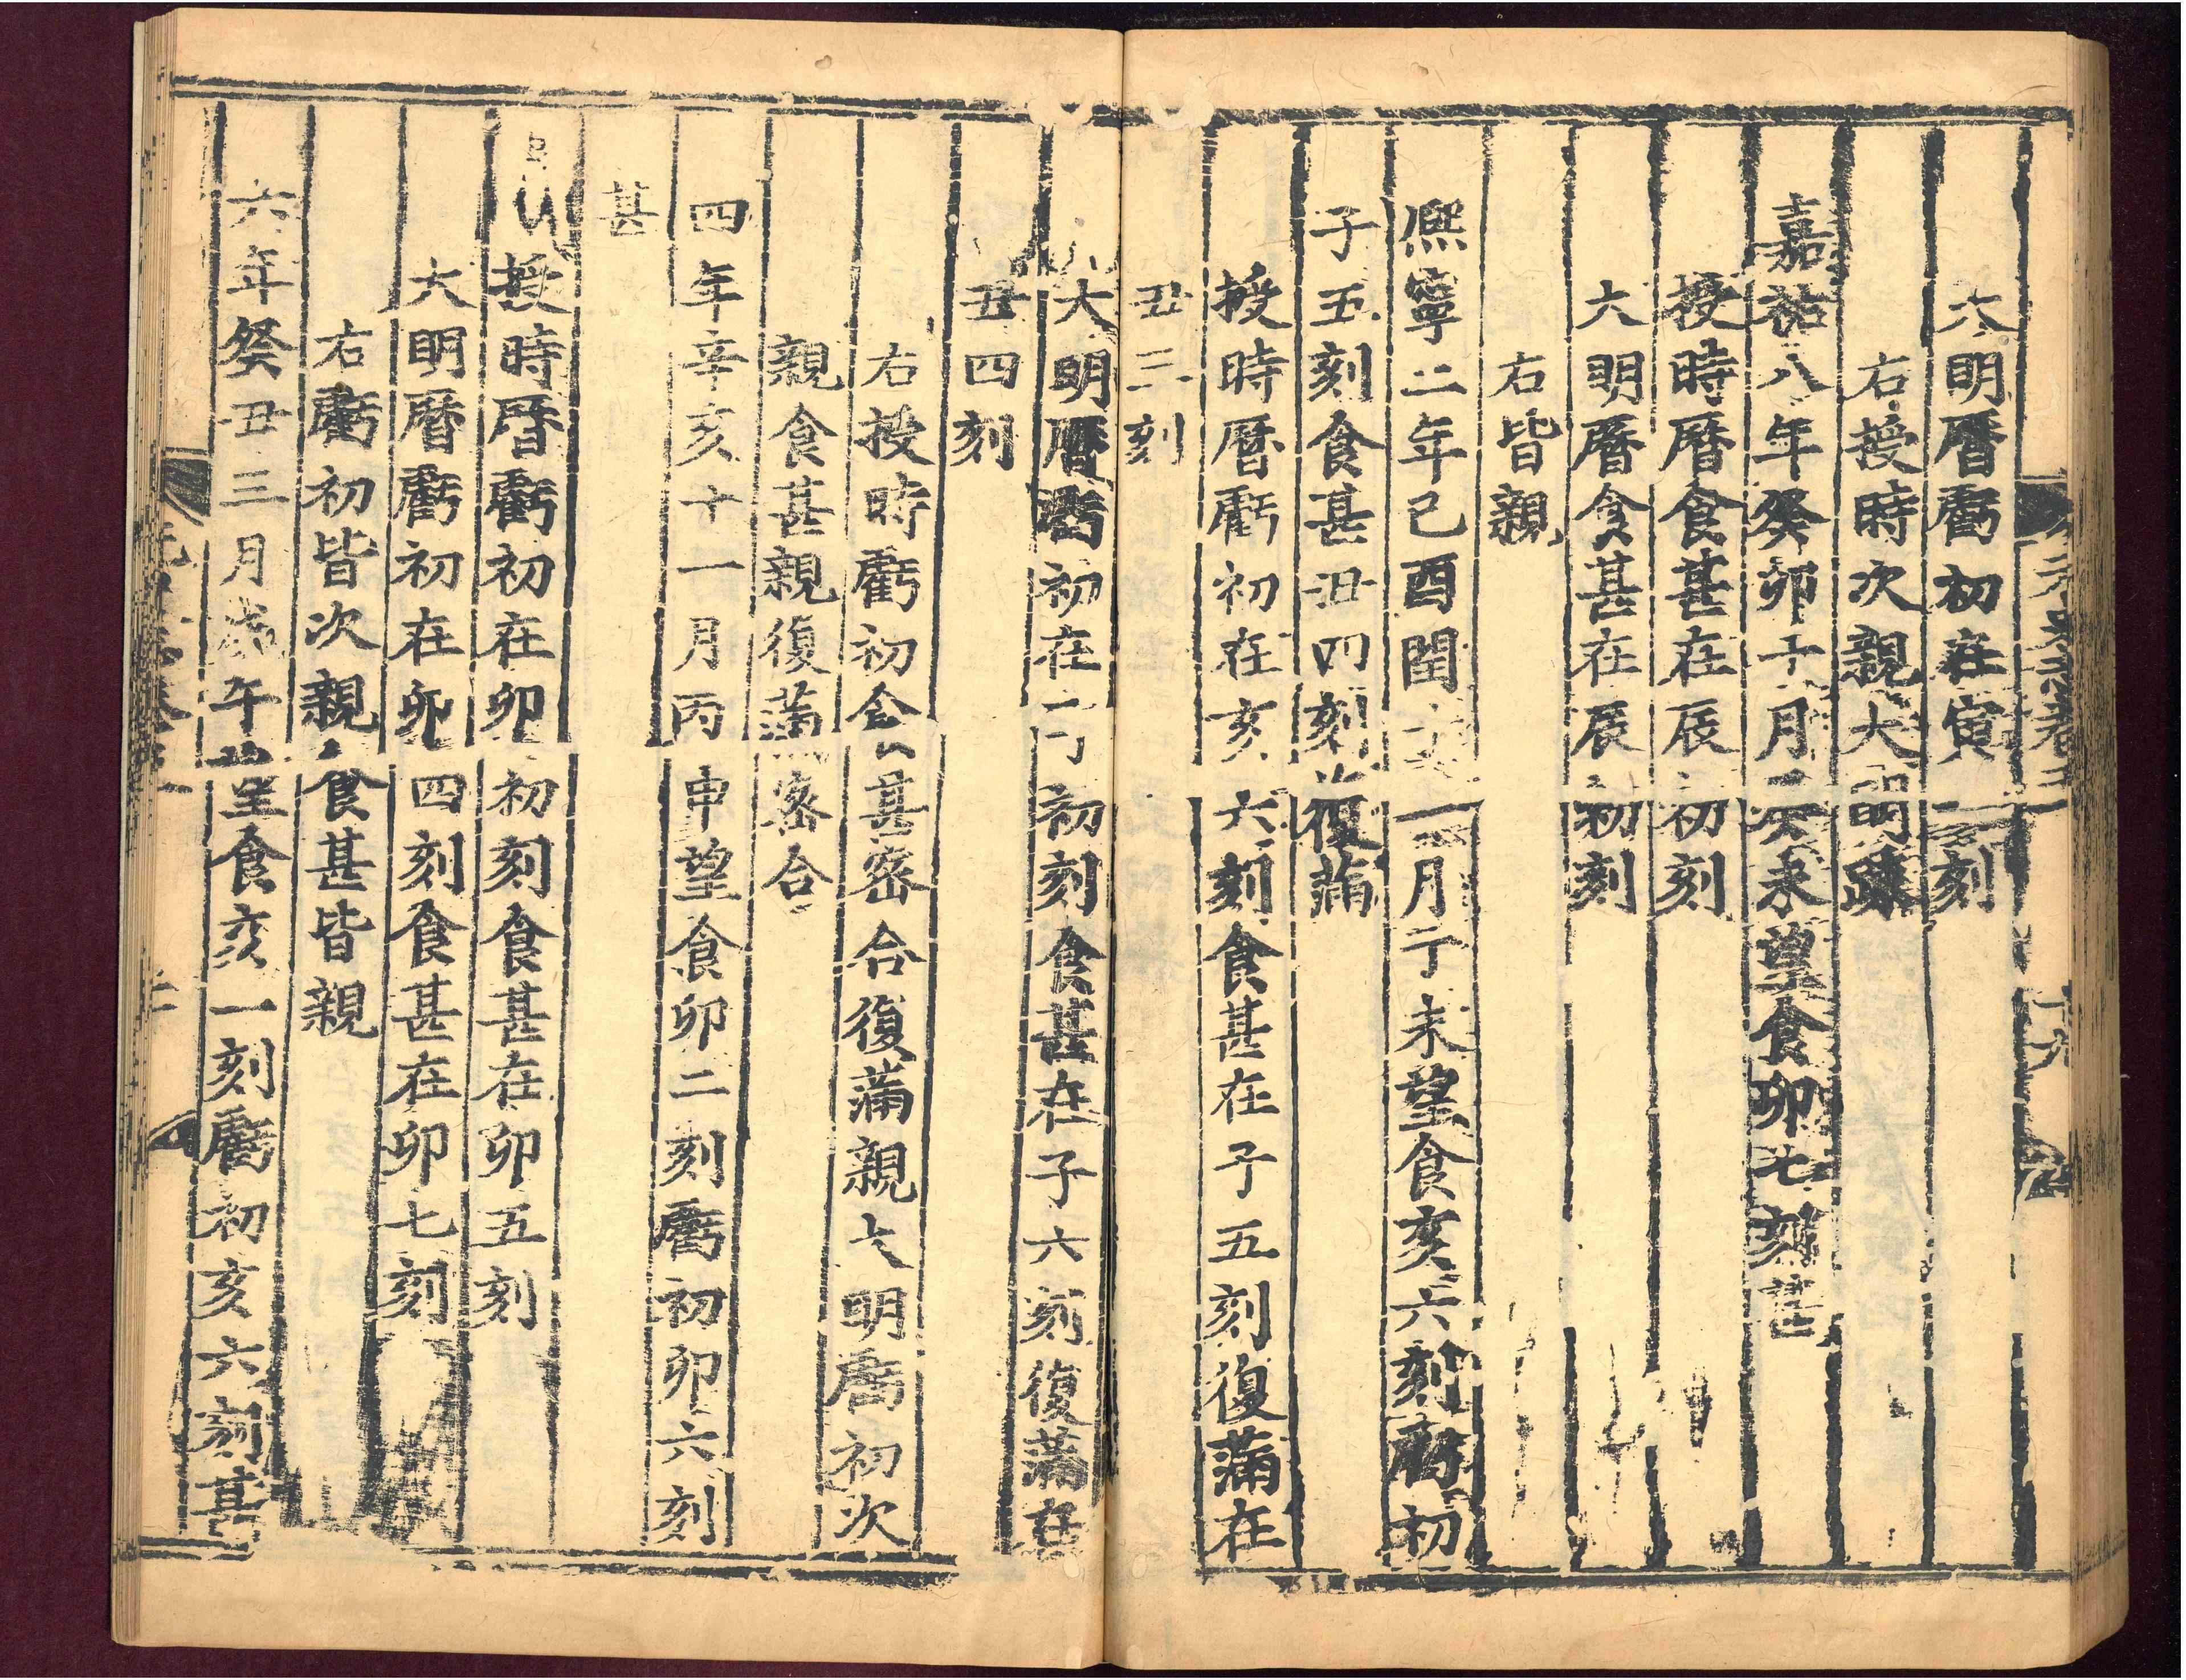 大明曆虧初在寅一刻
右授時次親大明疎
嘉祐八年癸卯十月未望食卯七刻甚
授時曆食甚在辰初刻
大明曆食甚在辰初刻
右皆親
熙寧二年己酉閏一月丁未望食亥六刻虧初
子五刻食甚丑四刻復滿
授時曆虧初在亥六刻食甚在子五刻復滿在
丑三刻
大明曆虧初在子初刻食甚在子六刻復滿在
丑四刻
右授時虧初食甚密合復滿親大明虧初次
親食甚親復滿密合
四年辛亥十一月丙申望食卯二刻虧初卯六刻
甚
授時曆虧初在卯初刻食甚在卯五刻
大明曆虧初在卯四刻食甚在卯七刻
右虧初皆次親食甚皆親
六年癸丑三月戊午望食亥一刻虧初亥六刻甚